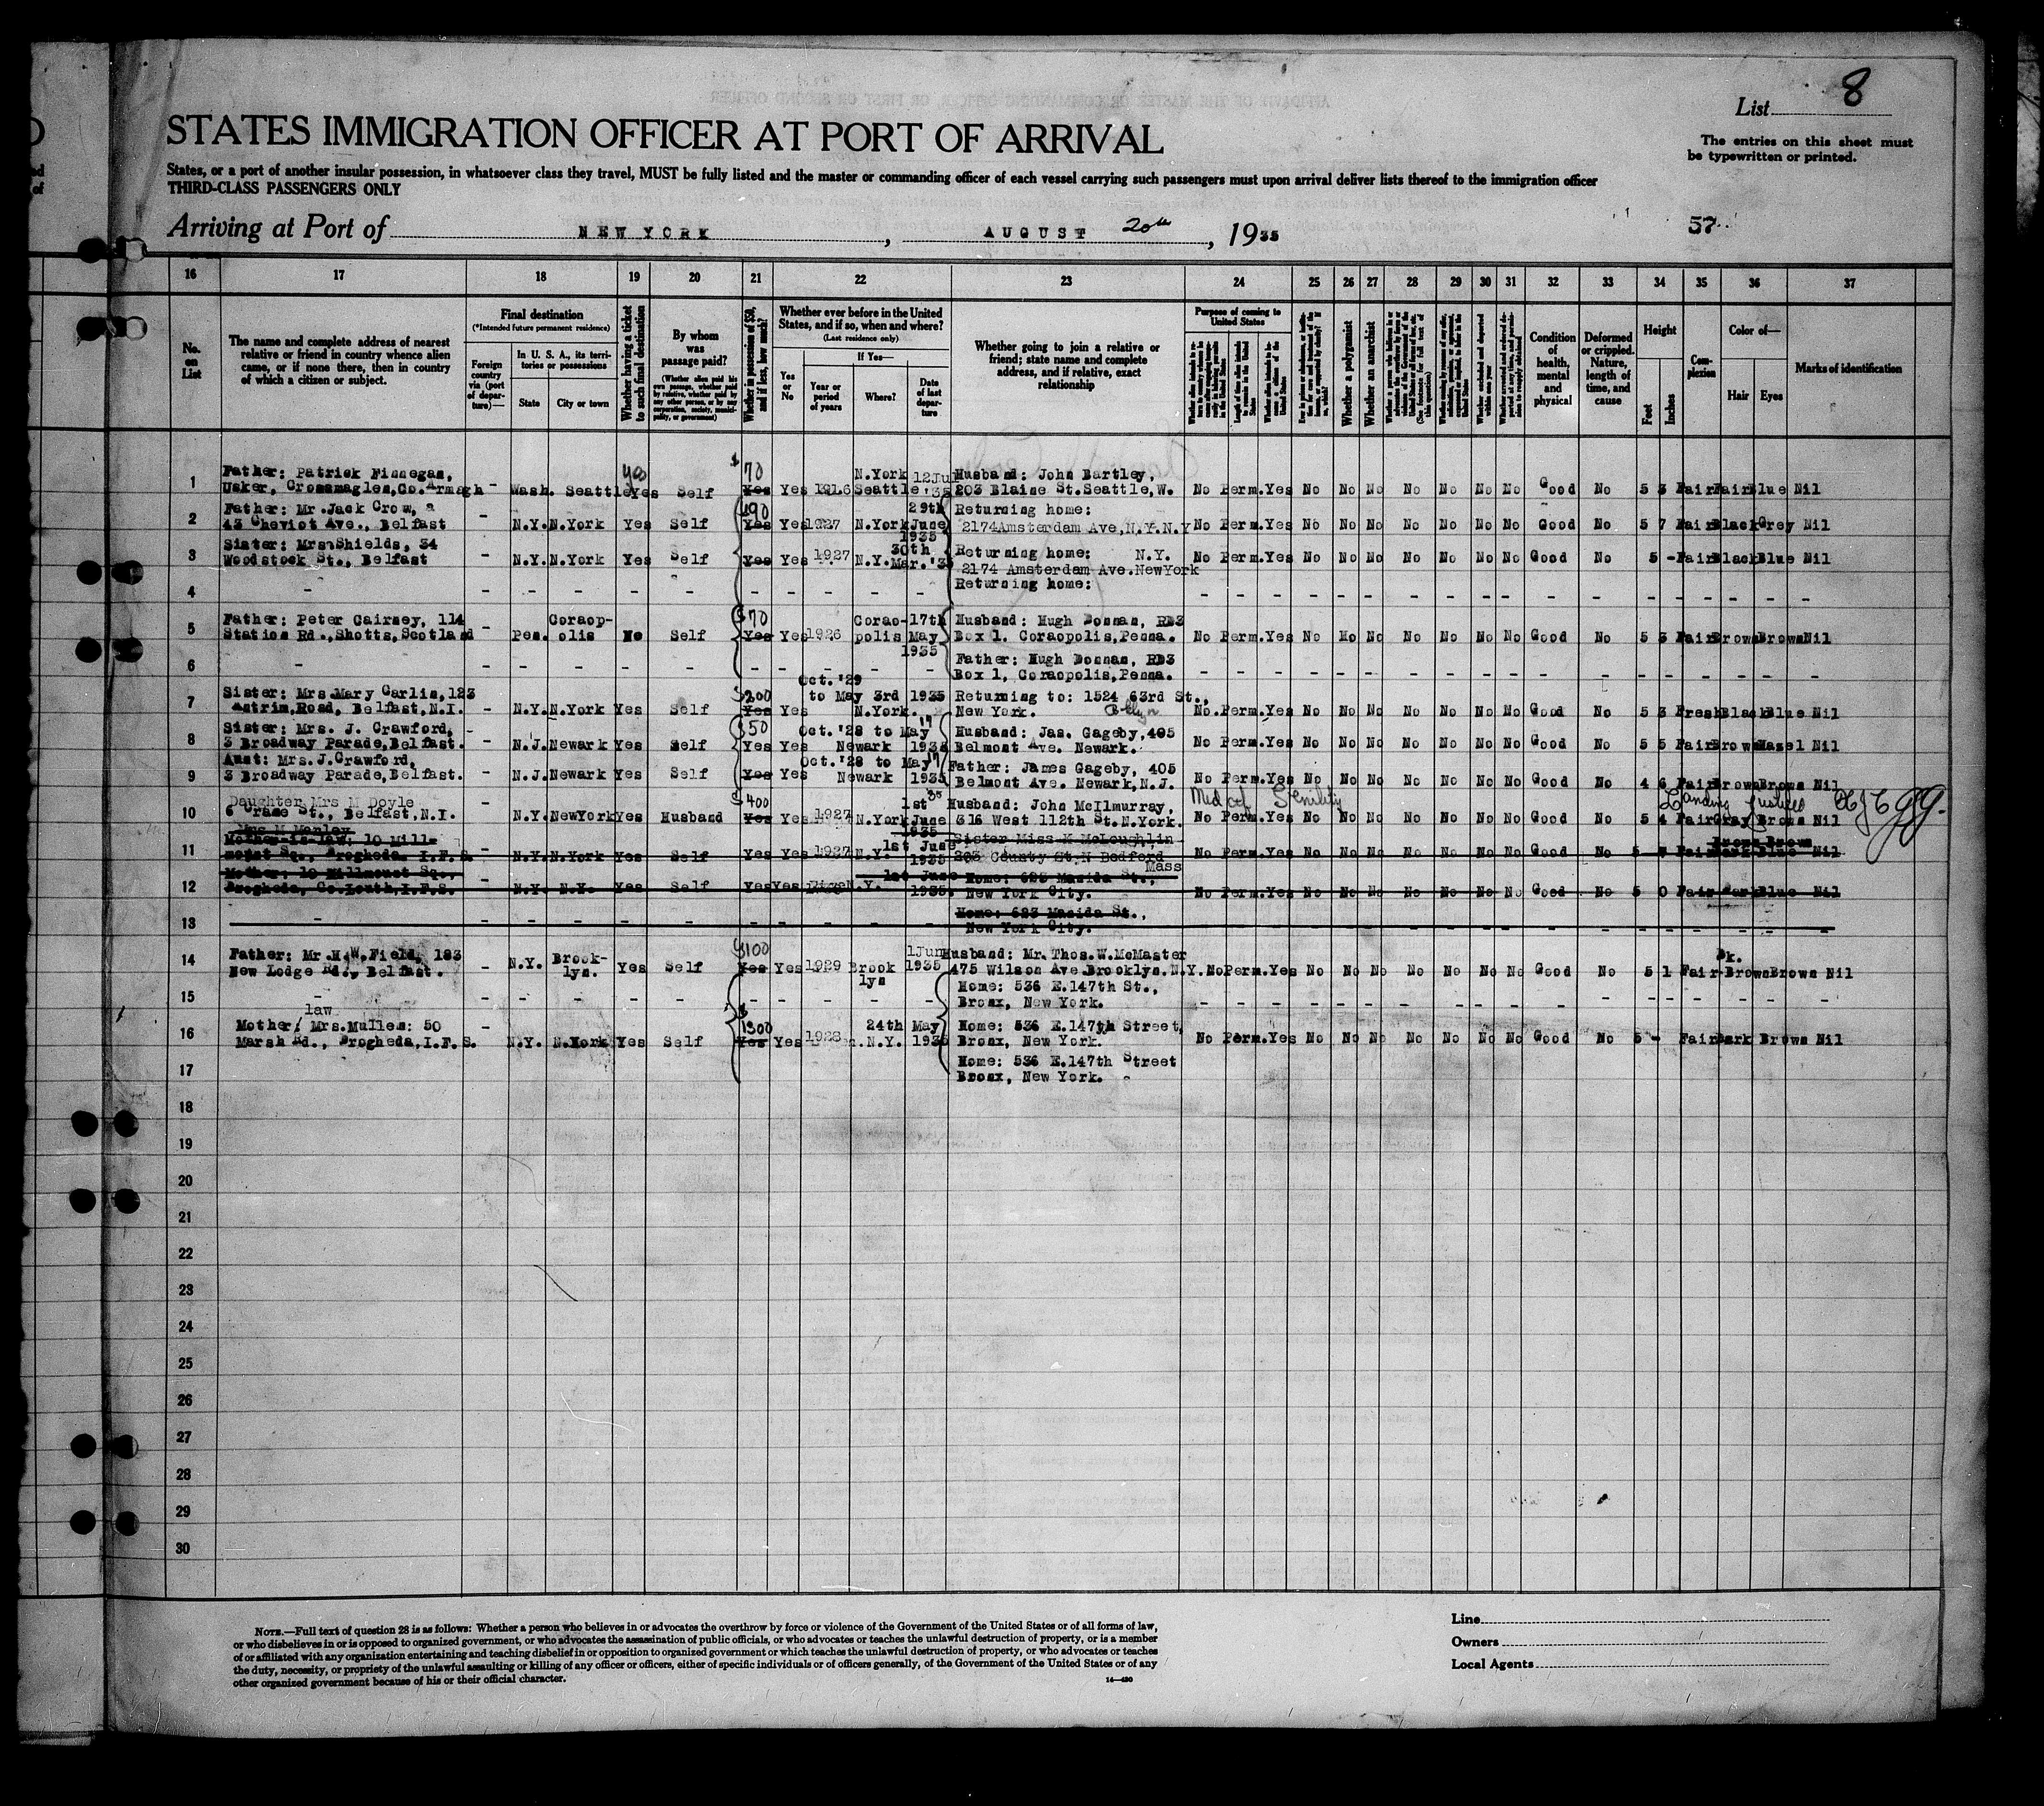 List 8
STATES IMMIGRATION OFFICER AT PORT OF ARRIVAL
The entries on this sheet must
be typewritten or printed.
States, or a port of another insular possession, in whatsoever class they travel, MUST be fully listed and the master or commanding officer of each vessel carrying such passengers must upon arrival deliver lists thereof to the immigration officer
THIRD-CLASS PASSENGERS ONLY
Arriving at Port of NEW YORK, AUGUST 20th, 1935
57
16 17 18 19 20 21 22 23 24 25 26 27 28 29 30 31 32 33 34 35 36 37
No. on List
The name and complete address of nearest
relative or friend in country whence alien
came, or if none there, then in country
of which a citizen or subject.
Final destination
(*Intended future permanent residence)
Foreign country via (port of departure)—
In U. S. A., its territories or possessions
State
City or town
Whether having a ticket to such final destination
By whom was passage paid?
(Whether alien paid his own passage, whether paid by relative, whether paid by any other person, or by any corporation, society, municipality, or government)
Whether in possession of $50, and if less, how much?
Whether ever before in the United
States, and if so, when and where?
(Last residence only)
Yes or No
If Yes—
Year or period of years
Where?
Date of last departure
Whether going to join a relative or
friend; state name and complete
address, and if relative, exact
relationship
Purpose of coming to United States
Whether a polygamist
Whether an anarchist
Condition of health, mental and physical
Deformed or crippled. Nature, length of time, and cause
Height
Feet
Inches
Complexion
Color of—
Hair
Eyes
Marks of identification
1 Father: Patrick Finnegan, N.York 12Jul Husband: John Bartley,
Usker, Crossmaglen, Co. Armagh - Wash. Seattle Yes Self $70 Yes Yes 1916 Seattle '35 203 Blaine St. Seattle, W. No Perm. Yes No No No No No No No Good No 5 3 Fair Fair Blue Nil
2 Father: Mr. Jack Crow, 29th Returning home:
43 Cheviot Ave., Belfast - N.Y. N.York Yes Self 490 Yes Yes 1927 N.York June 1935 2174 Amsterdam Ave, N.Y. N.Y No Perm. Yes No No No No No No No Good No 5 7 Fair Black Grey Nil
3 Sister: Mrs Shields, 34 30th Returning home: N.Y.
Woodstock St., Belfast - N.Y. N.York Yes Self Yes Yes 1927 N.Y. Mar.'35 2174 Amsterdam Ave. NewYork No Perm. Yes No No No No No No No Good No 5 - Fair Black Blue Nil
4 - Returning home:
5 Father: Peter Cairney, 114 Coraop- Corao- 17th Husband: Hugh Donnan, RD3
Station Rd., Shotts, Scotland - Pen. olis No Self $70 Yes Yes 1926 polis May 1935 Box 1, Coraopolis, Penna. No Perm. Yes No No No No No No No Good No 5 3 Fair Brown Brown Nil
6 - Father: Hugh Donnan, RD3
Box 1, Coraopolis, Penna.
7 Sister: Mrs Mary Carlin, 123 Oct. '29 to May 3rd 1935 Returning to: 1524 63rd St.,
Antrim, Road, Belfast, N.I. - N.Y. N.York Yes Self $200 Yes Yes N.York. New York. Bklyn No. Perm. Yes No No No No No No No Good No 5 3 Fresh Black Blue Nil
8 Sister: Mrs. J. Crawford, Oct. '28 to May 17 Husband: Jas. Gageby, 405
3 Broadway Parade, Belfast. - N.J. Newark Yes Self $50 Yes Yes Newark 1935 Belmont Ave. Newark. No Perm. Yes No No No No No No No Good No 5 5 Fair Brown Hazel Nil
9 Aunt: Mrs. J. Crawford, Oct. '28 to May 17 Father: James Gageby, 405
3 Broadway Parade, Belfast. - N.J. Newark Yes Self Yes Yes Newark 1935 Belmont Ave. Newark, N.J. No Perm. Yes No No No No No No No Good No 4 6 Fair Brown Brown Nil
Med cef Senility Landing
10 Daughter Mrs M Doyle 1st Husband: John McIlmurray,
6 Crane St., Belfast, N.I. - N.Y. NewYork Yes Husband $400 Yes Yes 1927 N.York June 1935 316 West 112th St. N.York. No Perm. Yes No No No No No No No Good No 5 4 Fair Gray Brown Nil
11 Mrs M Manley
Mother-in-law: 10 Mill- 1st June Sister Miss K McLoughlin
mount Sq., Drogheda. I.F.S. N.Y. N.York Yes Self Yes Yes 1927 N.Y. 1935 203 County St. N Bedford Mass No Perm. Yes No No No No No No No Good No Fair Dark Blue Nil
Brown Brown
12 Mother: 10 Millmount Sq., 1st June Home: 623 Manida St.,
Drogheda, Co. Louth, I.F.S. N.Y. N.Y. Yes Self Yes Yes N.Y. 1935. New York City. No Perm. Yes No No No No No No No Good No 5 0 Fair Dark Blue Nil
13 - Home: 623 Manida St.,
New York City.
14 Father: Mr. H.W. Field, 183 Brook- 1 Jun Husband: Mr. Thos. W. McMaster Dk.
New Lodge Rd., Belfast. - N.Y. lyn. Yes Self $100 Yes Yes 1929 Brook lyn 1935 475 Wilson Ave. Brooklyn. N.Y. No Perm. Yes No No No No No No No Good No 5 1 Fair Brown Brown Nil
15 - Home: 536 E.147th St.,
Bronx, New York.
16 law
Mother, Mrs. Mullen: 50 24th May Home: 536 E.147th Street,
Marsh Rd., Drogheda, I.F.S. - N.Y. N.York Yes Self $1300 Yes Yes 1928 N.Y. 1935 Bronx, New York. No Perm. Yes No No No No No No No Good No 5 - Fair Dark Brown Nil
17 Home: 536 E.147th Street
Bronx, New York.
18
19
20
21
22
23
24
25
26
27
28
29
30
NOTE.—Full text of question 28 is as follows: Whether a person who believes in or advocates the overthrow by force or violence of the Government of the United States or of all forms of law,
or who disbelieves in or is opposed to organized government, or who advocates the assassination of public officials, or who advocates or teaches the unlawful destruction of property, or is a member
of or affiliated with any organization entertaining and teaching disbelief in or opposition to organized government or which teaches the unlawful destruction of property, or who advocates or teaches
the duty, necessity, or propriety of the unlawful assaulting or killing of any officer or officers, either of specific individuals or of officers generally, of the Government of the United States or of any
other organized government because of his or their official character.
14—430
Line
Owners
Local Agents